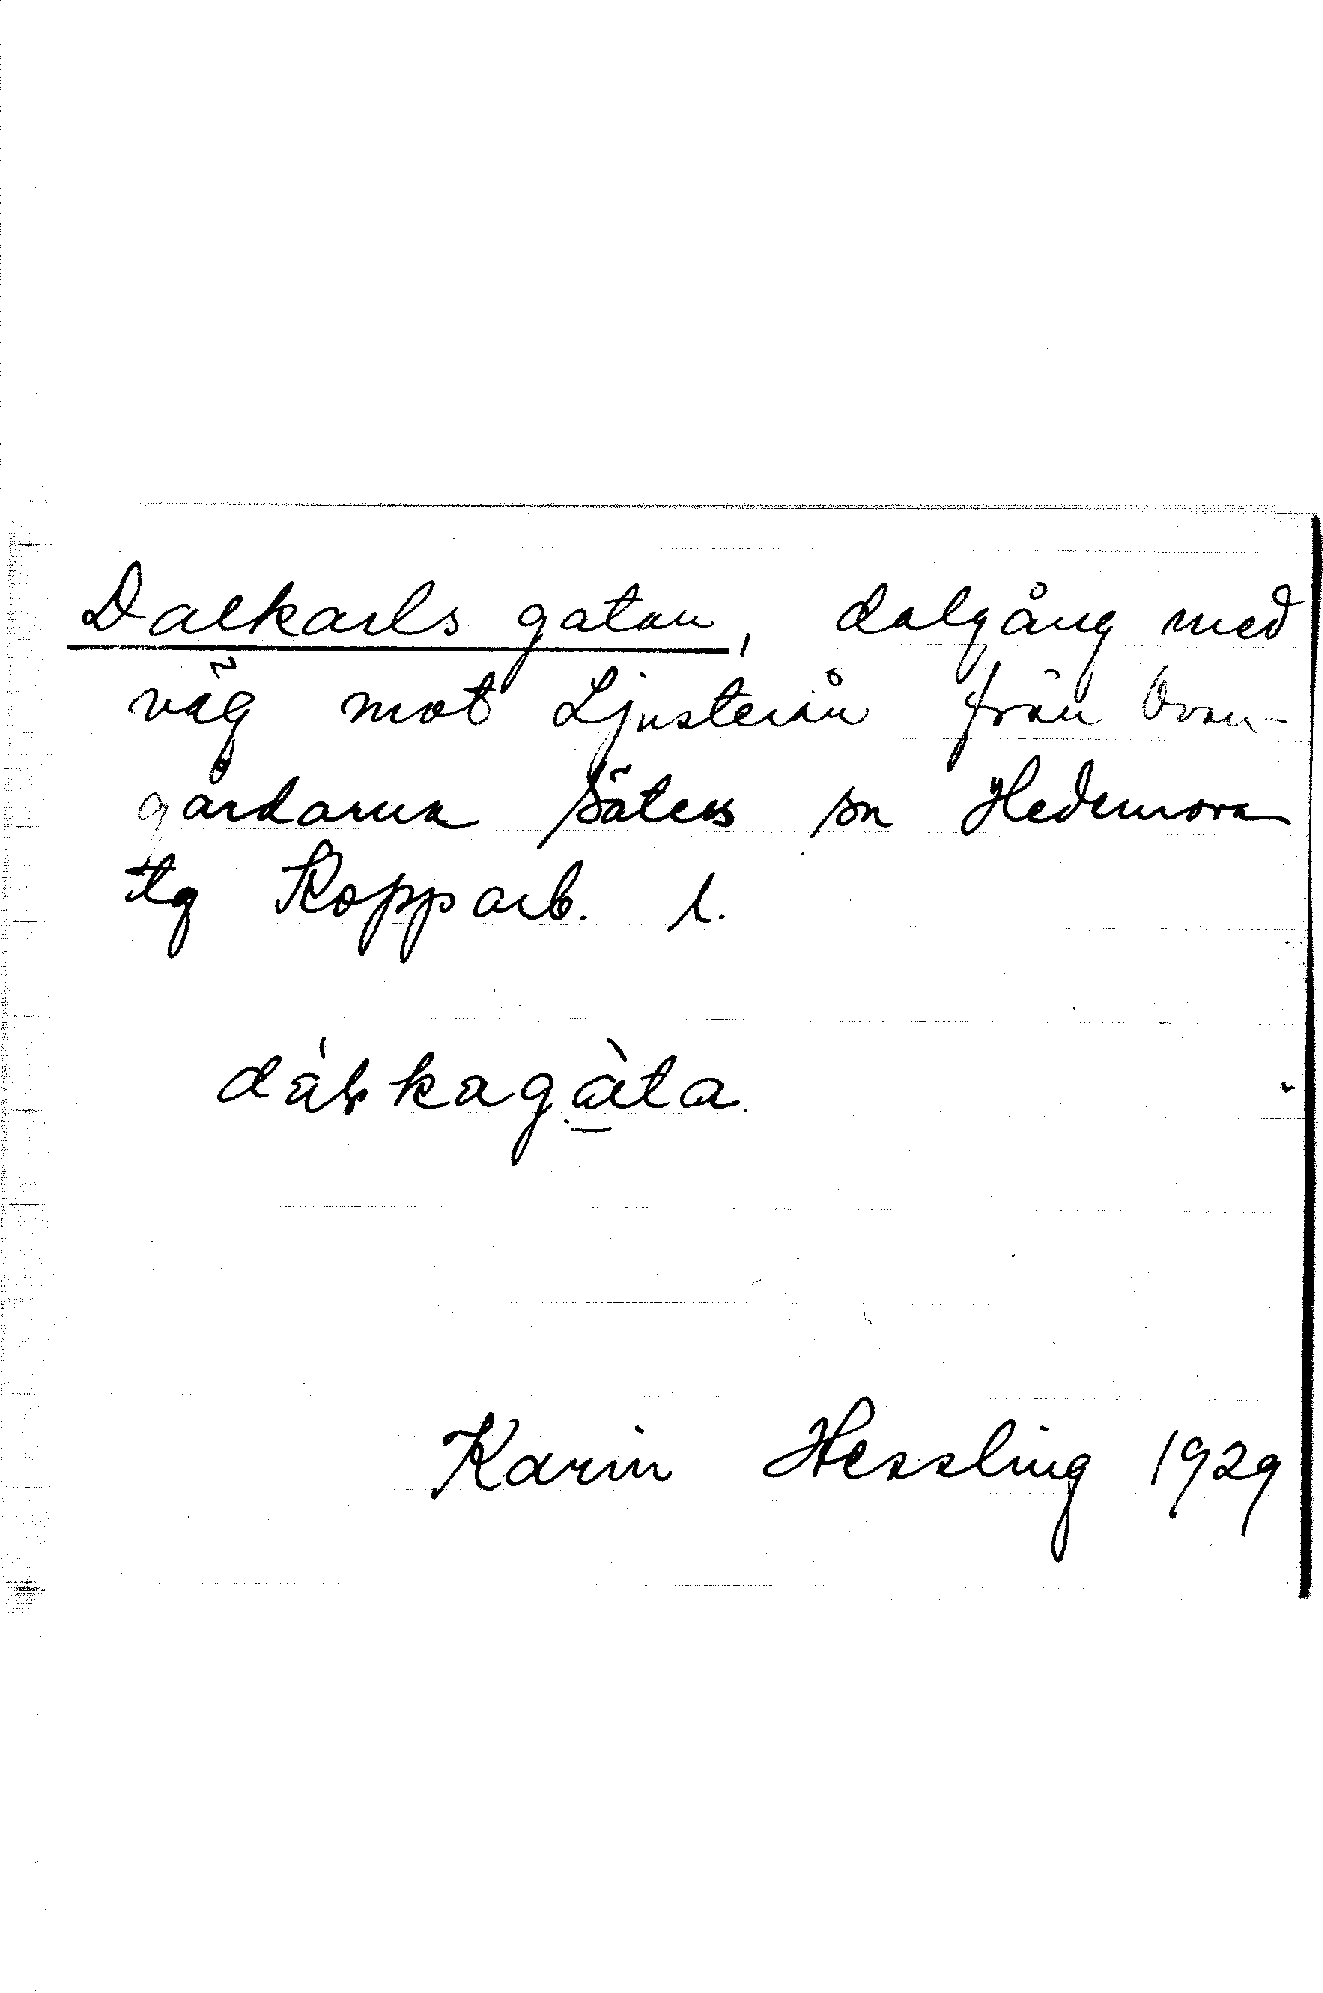 Dalkarls gatan, dalgång med
väg mot Ljusterån från Ovan-
gårdarna Säters sn Hedemora
tg Kopparb. l.
dáɬkagàta
Karin Hessling 1929